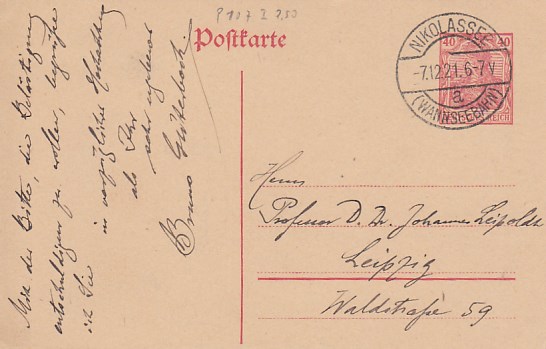 P 107 I 2,50
Postkarte
40 40
REICH
NIKOLASSEE
-7.12.21. 6-7 V
a
(WANNSEEBAHN)
Mit der Bitte, die Belästigung
entschuldigen zu wollen, begrüße
ich Sie
in vorzüglicher Hochachtung
als Ihr
sehr ergebener
Bruno
Herrn
Professor D. Dr. Johannes Leipoldt
Leipzig
Waldstraße 59